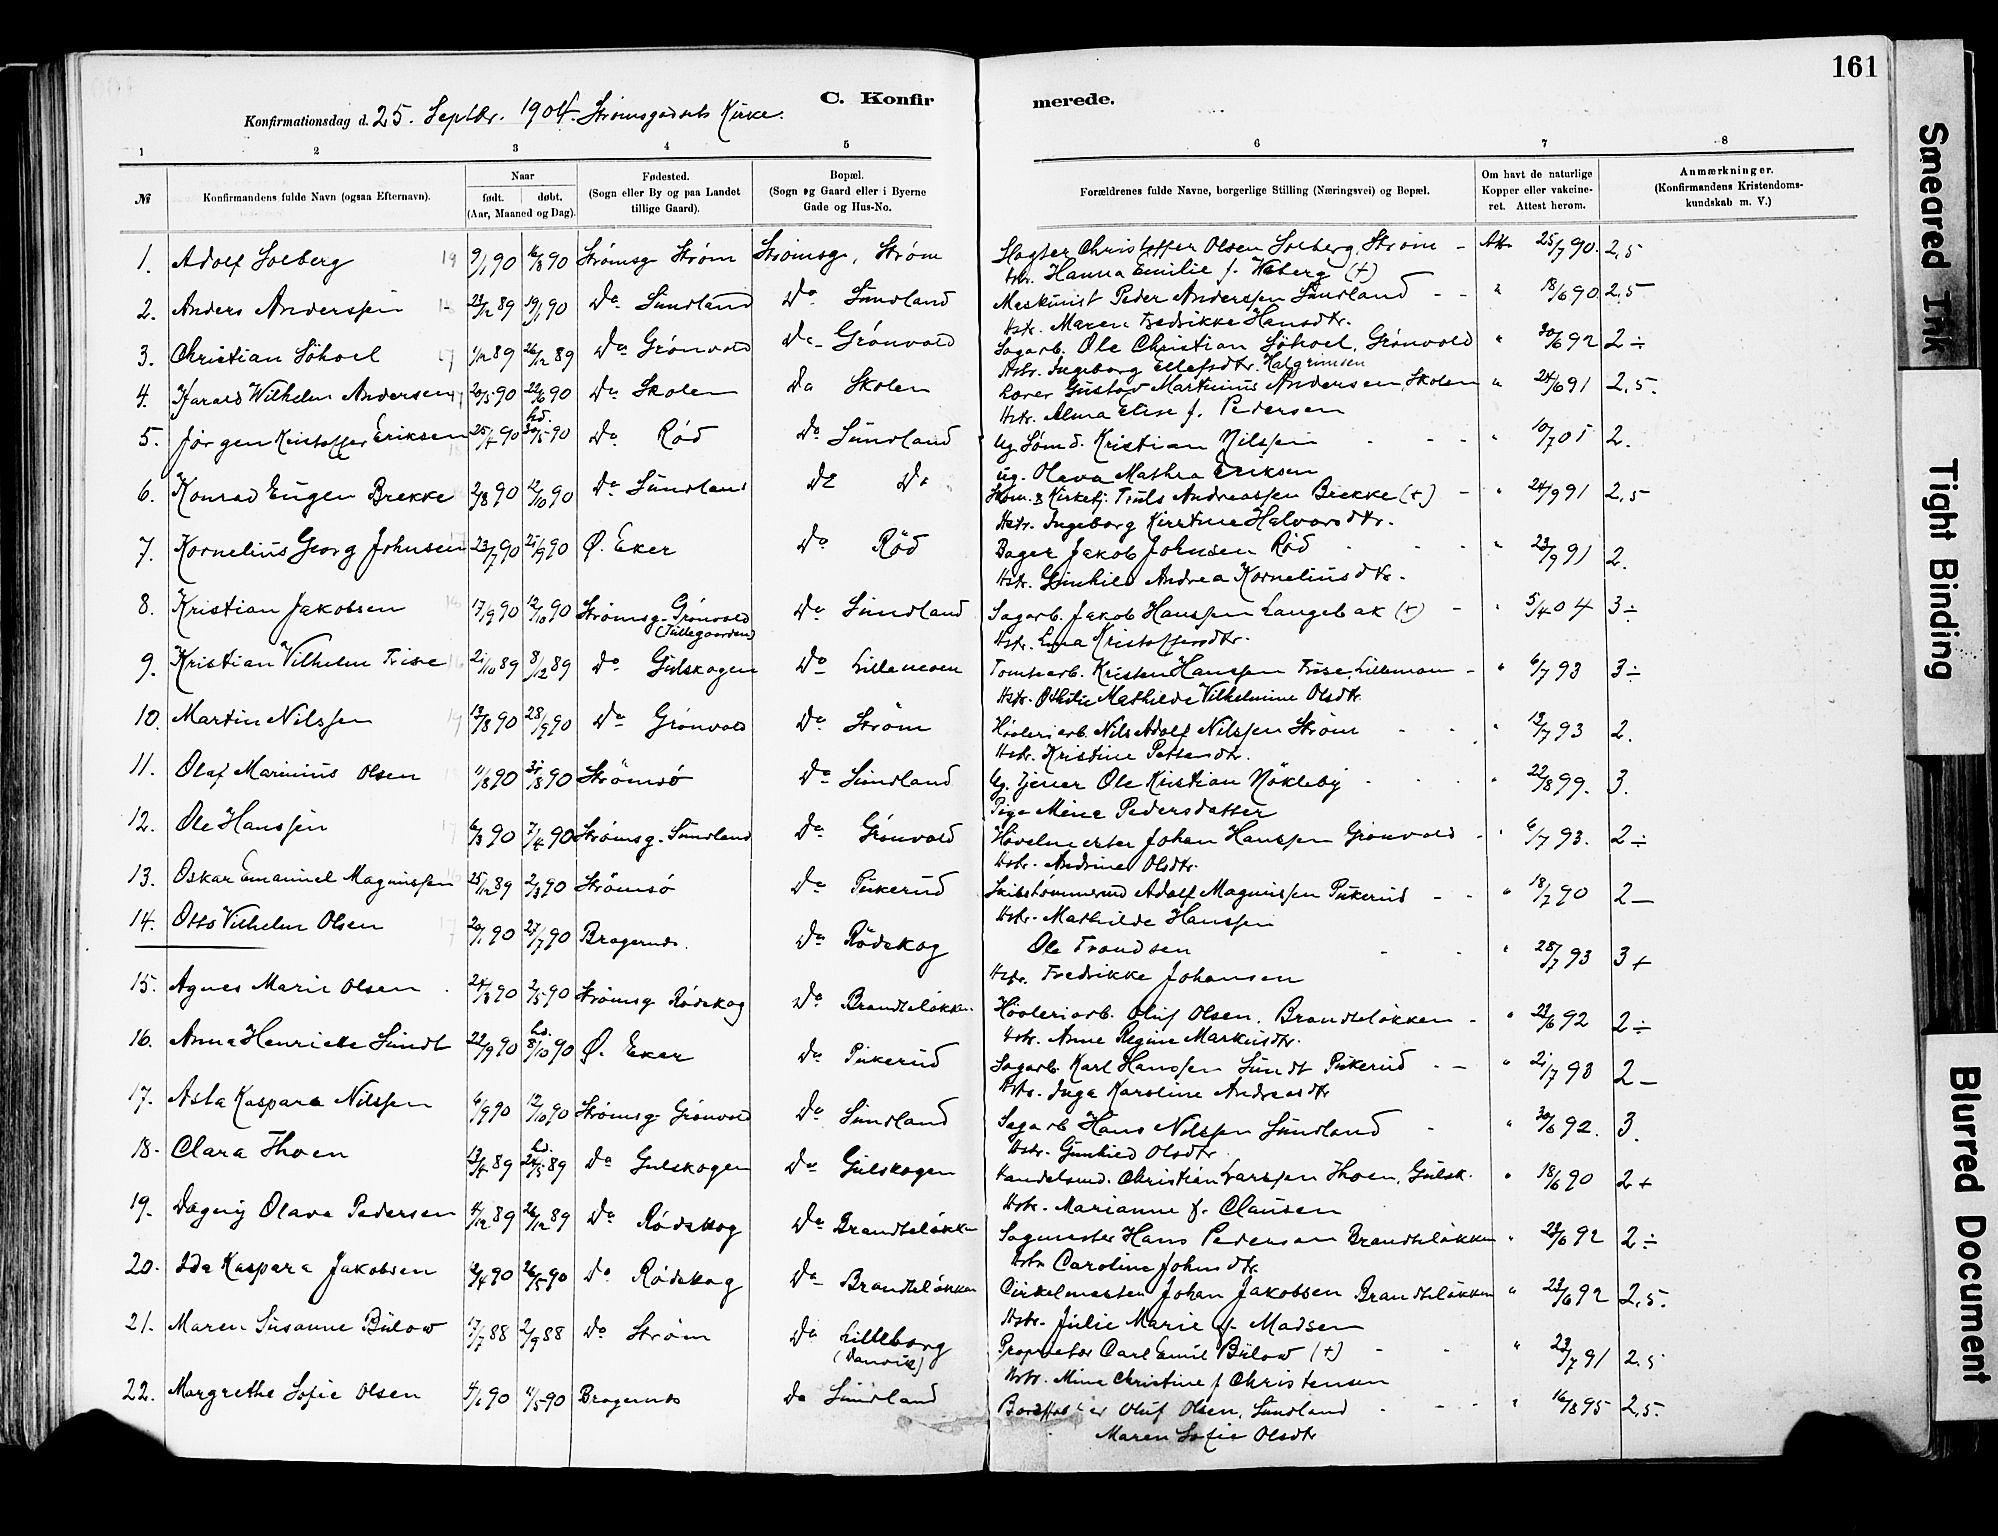 161
C. Konfir merede.
Konfirmationsdag d. 25. Septbr. 1904. Strømsgodsets Kirke.
1 2 3 4 5 6 7 8
№ Konfirmandens fulde Navn (ogsaa Efternavn). Naar født. døbt. (Aar, Maaned og Dag). Fødested. (Sogn eller By og paa Landet tillige Gaard). Bopæl. (Sogn og Gaard eller i Byerne Gade og Hus-No. Forældrenes fulde Navne, borgerlige Stilling (Næringsvei) og Bopæl. Om havt de naturlige Kopper eller vakcineret. Attest herom. Anmærkninger. (Konfirmandens Kristendomskundskab m. V.)
1. Adolf Solberg 9/1 90 16/3 90 Strømsg. Strøm Strømsg. Strøm Slagter Christoffer Olsen Solberg, Strøm - Att. 25/7 90. 2,5
Hstr. Hanna Emilie f. Waberg (+)
2. Anders Anderssen 23/12 89 19/1 90 Do Sundland Do Sundland Maskinist Peder Anderssen Sundland - - " 18/6 90 2,5
Hstr. Maren Fredrikke Hansdtr.
3. Christian Söhoel 1/12 89 26/12 89 Do Grönvold Do Grönvold Sagarb. Ole Christian Söhoel, Grönvold " 30/6 92 2 ÷
Hstr. Ingeborg Ellefsdtr. Halgrimsen
4. Harald Wilhelm Andersen 20/5 90 22/6 90 Do Skolen Do Skolen Lærer Gustav Martinius Andersen, Skolen " 24/6 91 2,5.
Hstr. Alma Elise f. Pedersen
5. Jørgen Kristoffer Eriksen 25/4 90 hd. 30/5 90 Do Rød Do Sundland Ug. Sømd. Kristian Nilssen - - - " 10/7 01 2.
ug. Olava Mathea Eriksen
6. Konrad Eugen Brekke 2/8 90 12/10 90 Do Sundland Do Do Skom. & Kirketj. Truls Andreassen Brekke (+) - " 24/9 91 2,5
Hstr. Ingeborg Kirstine Halvorsdtr.
7. Kornelius Georg Johnsen 23/7 90 21/9 90 Ø. Eker Do Röd Bager Jakob Johnsen Röd - - - " 23/9 91 2.
Hstr. Gunhild Andrea Korneliusdtr.
8. Kristian Jakobsen 17/9 90 12/10 90 Strømsg. Grönvold (Tollegaarden) Do Sundland Sagarb. Jakob Hanssen Langebak (+) - " 5/4 04 3 ÷
Hstr. Lina Kristoffersdtr.
9. Kristian Vilhelm Frise 21/10 89 8/12 89 Do Gulskogen Do Lillemoen Tomtearb. Kristen Hanssen Frise, Lillemoen - " 6/7 93 3 ÷
Hstr. Othilie Mathilde Vilhelmine Olsdtr.
10. Martin Nilssen 13/8 90 28/9 90 Do Grönvold Do Strøm Høvleriarb. Nils Adolf Nilssen Strøm - - - " 13/7 93 2.
Hstr. Kristine Pettersdtr.
11. Olaf Marinius Olsen 11/8 90 31/8 90 Strömsö Do Sundland Ug. Tjener Ole Kristian Nökleby - - - " 22/8 99. 3.
Pige Mine Pedersdatter
12. Ole Hanssen 6/3 90 7/4 90 Strømsg. Sundland Do Grönvold Høvelmester Johan Hanssen Grönvold - " 6/7 93. 2 ÷
Hstr. Andrine Olsdtr.
13. Oskar Emanuel Magnussen 25/12 89 2/3 90 Strömsö Do Pukerud Skibstømmermd Adolf Magnussen Pukerud - - " 18/7 90 2 —
Hstr. Mathilde Hanssen
14. Otto Vilhelm Olsen 20/1 90 27/7 90 Bragernæs. Do Rödskog Ole Trondsen - - " 28/7 93 3 +
Hstr. Fredrikke Johansen
15. Agnes Marie Olsen 24/3 90 2/5 90 Strømsg Rödskog Do Brandtsløkken Høvleriarb. Oluf Olsen, Brandtsløkken - " 23/6 92 2 ÷
Hstr. Anne Regine Markusdtr.
16. Anna Henriette Sundt 22/9 90 hd. 8/10 90 Ø. Eker Do Pukerud Sagarb. Karl Hanssen Sundt Pukerud - - " 21/7 93 2 —
Hstr. Inga Karoline Andreasdtr
17. Asta Kaspara Nilssen 6/9 90 12/10 90 Strømsg Grönvold Do Sundland Sagarb Hans Nilssen Sundland - " 30/6 92. 3.
Hstr. Gunhild Olsdtr.
18. Clara Thoen 13/4 89 hd. 24/5 89 Do Gulskogen Do Gulskogen Handelsmd. Christian Larssen Thoen, Gulsk. " 18/6 90 2 +
Hstr. Marianne f. Clausen
19. Dagny Olava Pedersen 4/12 89 26/12 89 Do Rödskog Do Brandtsløkken Sagmester Hans Pedersen Brandtsløkken " 23/6 92 2 ÷
Hstr Caroline Johnsdtr.
20. Ida Kaspara Jakobsen 12/4 90 26/5 90 Do Rödskog Do Brandtsløkken Cirkelmester Johan Jakobsen Brandtsløkken " 23/6 92 2,5.
Hstr. Julie Marie f. Madsen
21. Maren Susanne Bülow 17/7 88 2/9 88 Do Strøm Do Lilleborg (Danvik) Proprietær Carl Emil Bülow (+) - - " 23/7 91 2,5
Hstr. Mina Christine f Christensen
22. Margrethe Sofie Olsen 4/1 90 11/5 90 Bragernæs Do Sundland Oluf Olsen, Sundland - - - " 16/8 95 2,5.
Maren Sofie Olsdtr
Smeared Ink
Tight Binding
Blurred Document